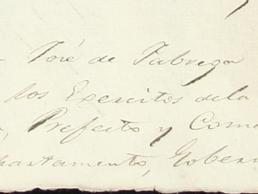 José de Fabrega
los Exercitos dela
Prefecto y Coma
partamento, Gobern